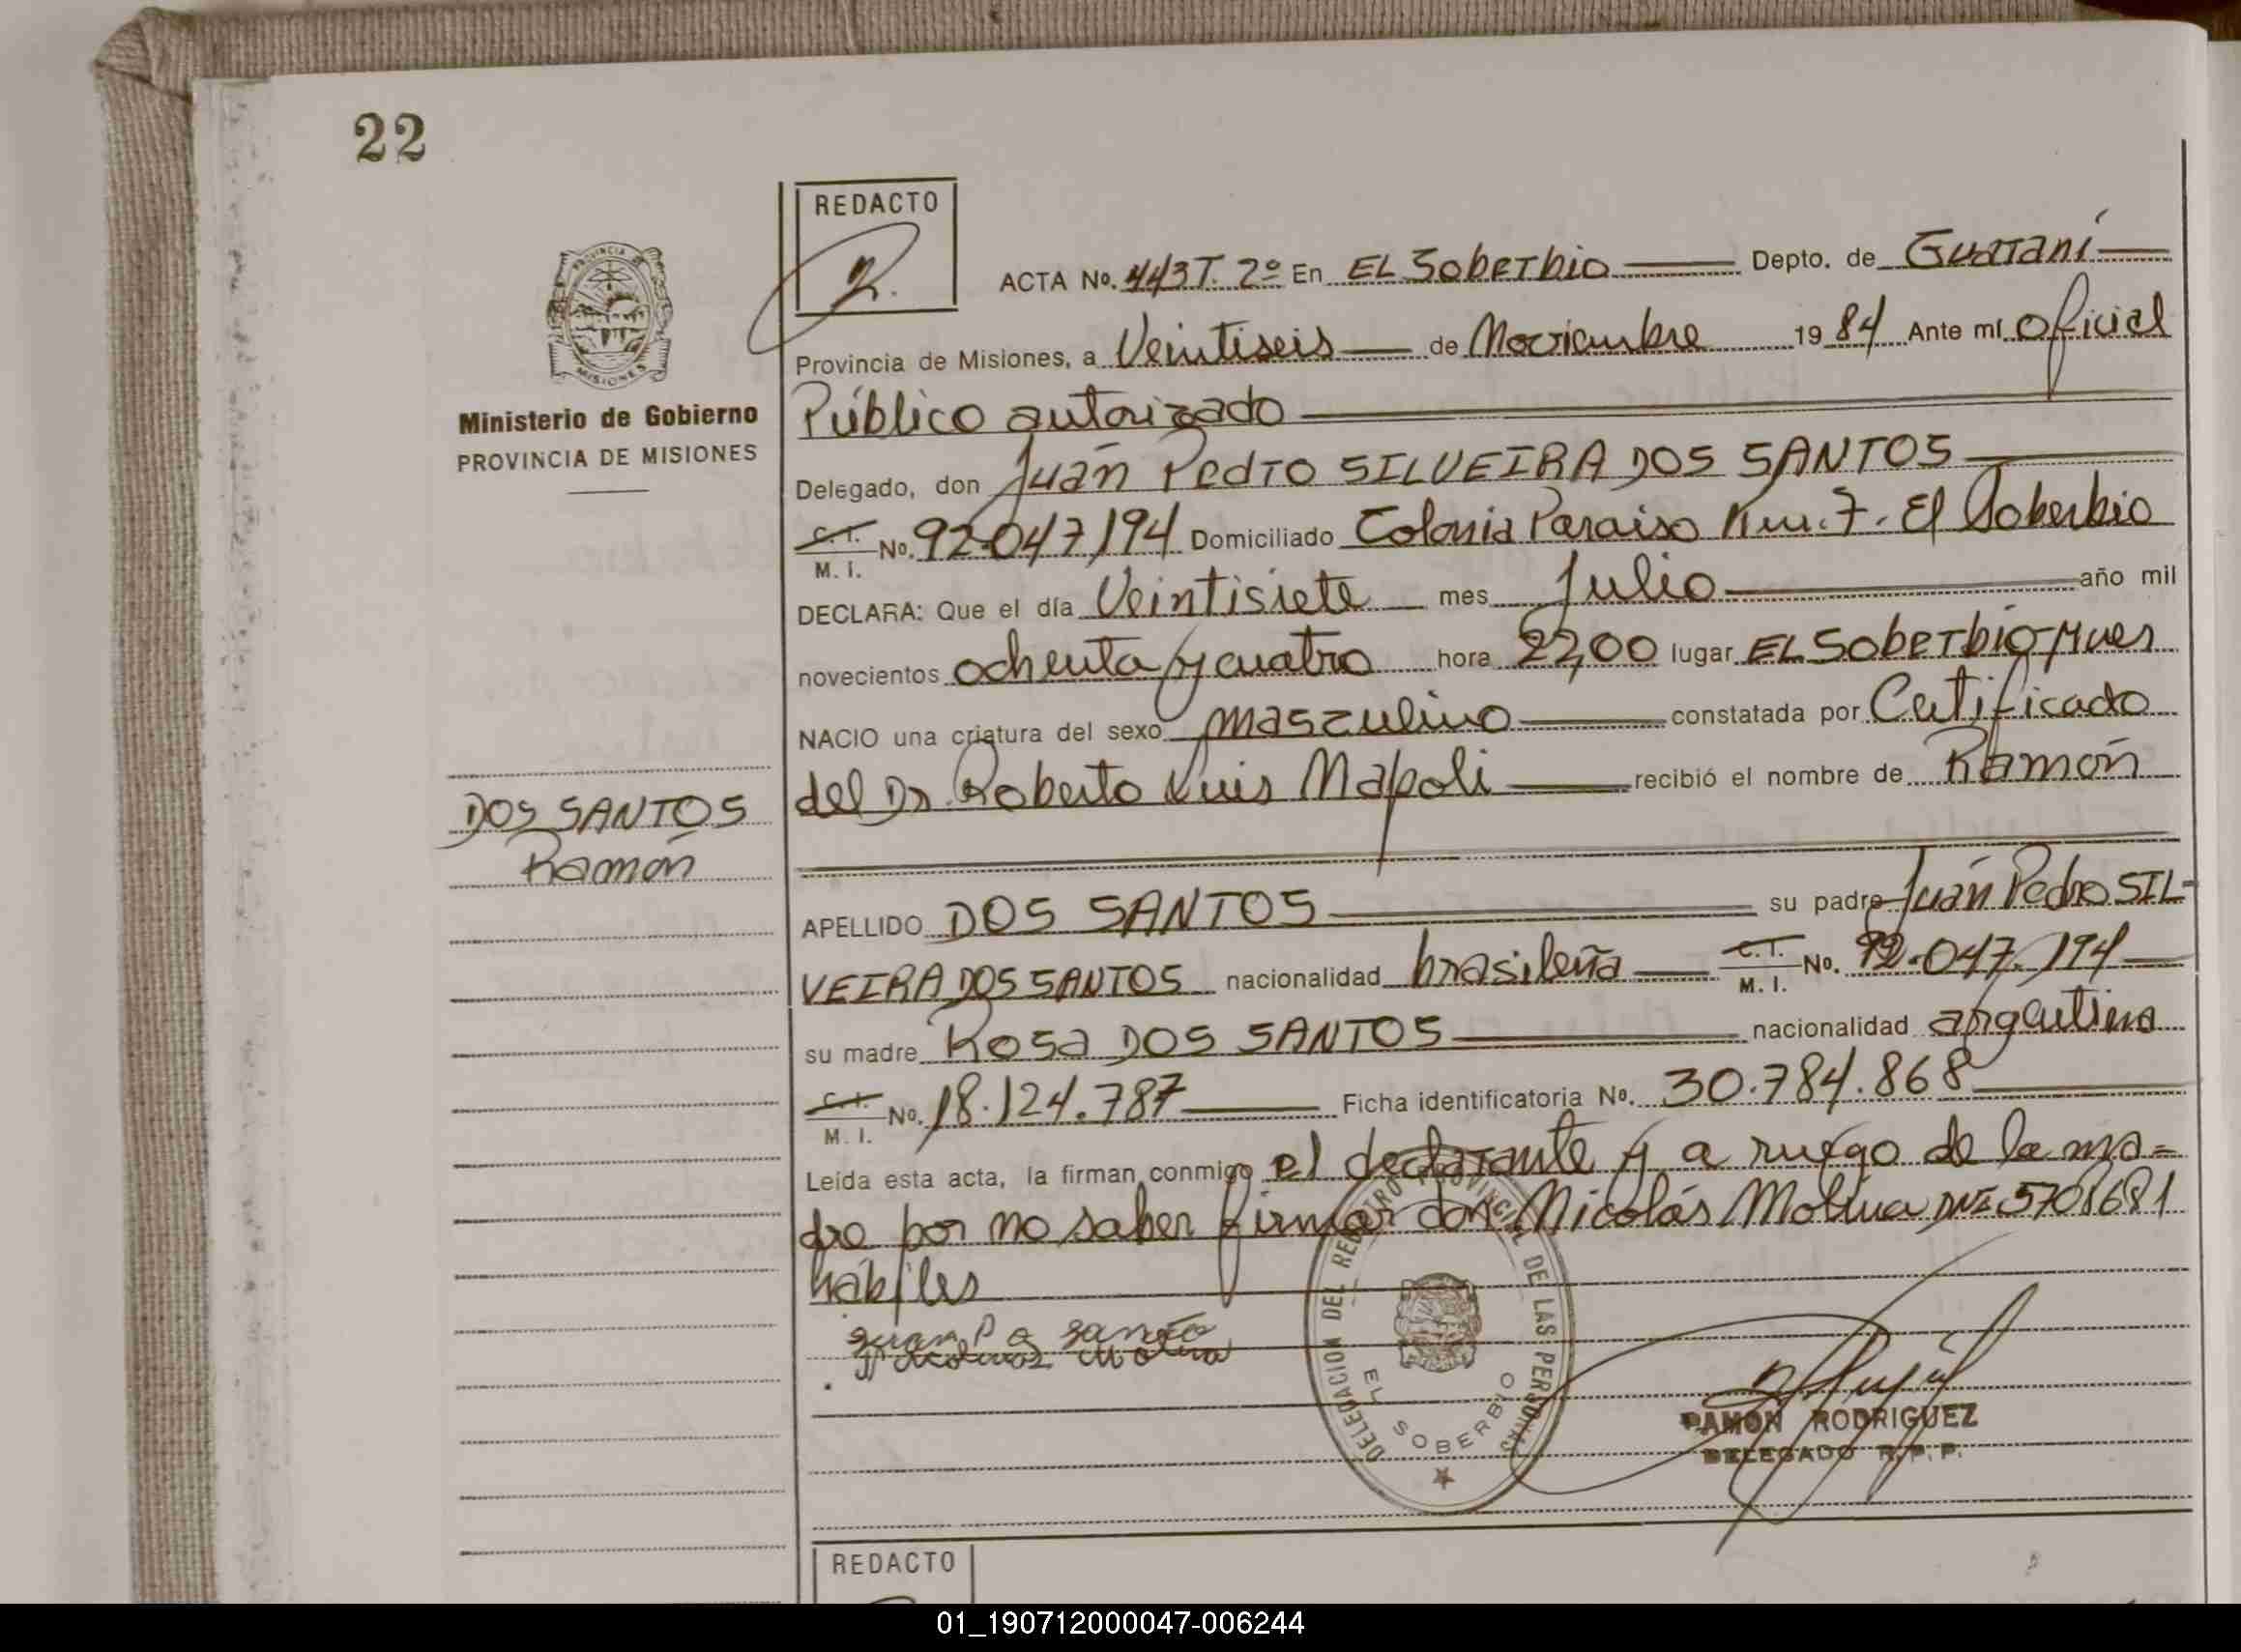 22
REDACTO
2.
ACTA No. 443 T. 2º En EL Soberbio Depto. de Guaraní
Provincia de Misiones, a Veintiseis de Noviembre 1984 Ante mí Oficial
Público autorizado
Delegado, don Juán Pedro SILVEIRA DOS SANTOS
C. I. M. I. No. 92.047.194 Domiciliado Colonia Paraiso Km. 7. El Soberbio
DECLARA: Que el día Veintisiete mes Julio año mil
novecientos ochenta y cuatro hora 22,00 lugar EL Soberbio-Mnes
NACIO una criatura del sexo masculino constatada por Certificado
del Dr. Roberto Luis Napoli recibió el nombre de Ramón
APELLIDO DOS SANTOS su padre Juán Pedro SIL-
VEIRA DOS SANTOS nacionalidad brasileña C. I. M. I. No. 92.047.194
su madre Rosa DOS SANTOS nacionalidad argentina
C. I. M. I. No. 18.124.787 Ficha identificatoria No. 30.784.868
Leída esta acta, la firman conmigo el declarante y a ruego de la ma=
dre por no saber firmar don Nicolás Molina DNI 5708681
hábiles
Nicolas Molina
PROVINCIA
MISIONES
Ministerio de Gobierno
PROVINCIA DE MISIONES
DOS SANTOS
Ramón
DELEGACION DEL REGISTRO PROVINCIAL DE LAS PERSONAS
EL SOBERBIO
RAMON RODRIGUEZ
DELEGADO R. P. P.
REDACTO
01_190712000047-006244